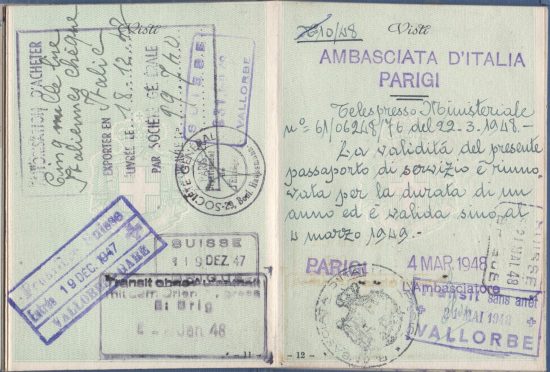 Visti
AUTORISATION D'ACHETER
Cinq mille lire
Italiennes chèque
EXPORTER EN Italie
LIVRÉE LE 18.12.
PAR SOCIÉTÉ GÉNÉRALE
SOCIÉTÉ GÉNÉRALE
29, Boul. Haussmann
SUISSE
VALLORBE
Transit Suisse
Entrée 19 DEC. 1947
VALLORBE-GARE
SUISSE
19 DEZ 47
Transit ohne
mit dem Orient
E: Brig
Jan 48
- 11 -
Visti
10/48
AMBASCIATA D'ITALIA
PARIGI
Telespresso Ministeriale
n° 61/06248/76 del 22-3-1948-
La validità del presente
passaporto di servizio è rinno
vata per la durata di un
anno ed è valida sino al
4 marzo 1949-
PARIGI 4 MAR. 1948
L'Ambasciatore
SUISSE
MAI 48
Transit sans arrêt
MAI 1948
VALLORBE
- 12 -